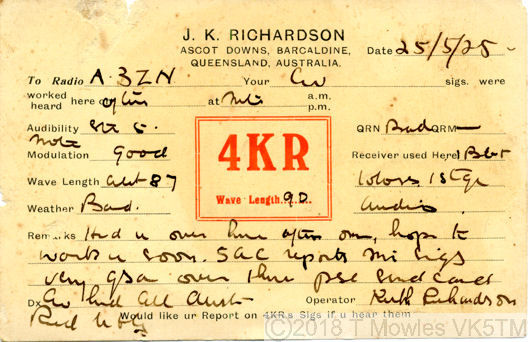 J. K. RICHARDSON
ASCOT DOWNS, BARCALDINE,
QUEENSLAND, AUSTRALIA.
Date 25/5/25
To Radio A.3ZN Your CW sigs. were
worked
heard here often at nite a.m.
p.m.
Audibility 5.
Note
Modulation Good
QRN Bad QRM —
Receiver used Here
4KR
Wave Length 90
Wave Length abt 87
loloss 1 stge
Weather Bad.
audio
Remarks Hrd u over hre often om, hope to
work u soon. 5AC reports mi sigs
very qsa over thre pse send card
Dx CW hrd all Aust
Operator Richardson
Would like ur Report on 4KR's Sigs if u hear them
©2018 T Mowles VK5TM